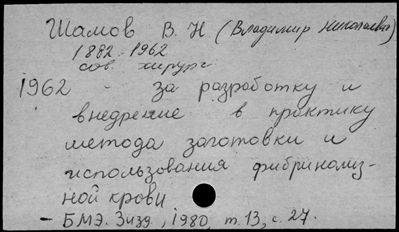 Шамов В. Н. (Владимир Николаевич)
1882-1962
сов. хирург
1962 - за разработку и
внедрение в практику
метода заготовки и
использования фибринолиз-
ной крови
- БМЭ. 3 изд., 1980, т. 13, с. 27.